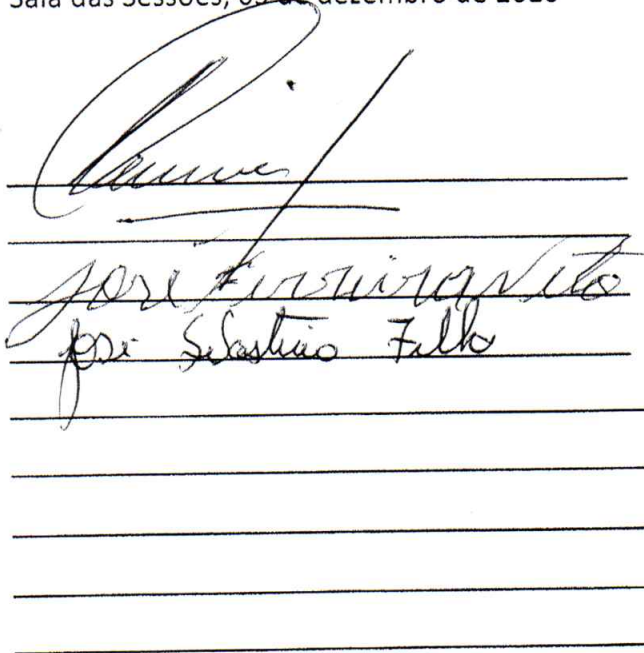 Sala das Sessões, 03 de dezembro de 2020
José Ferreira Neto
José Sebastião Filho